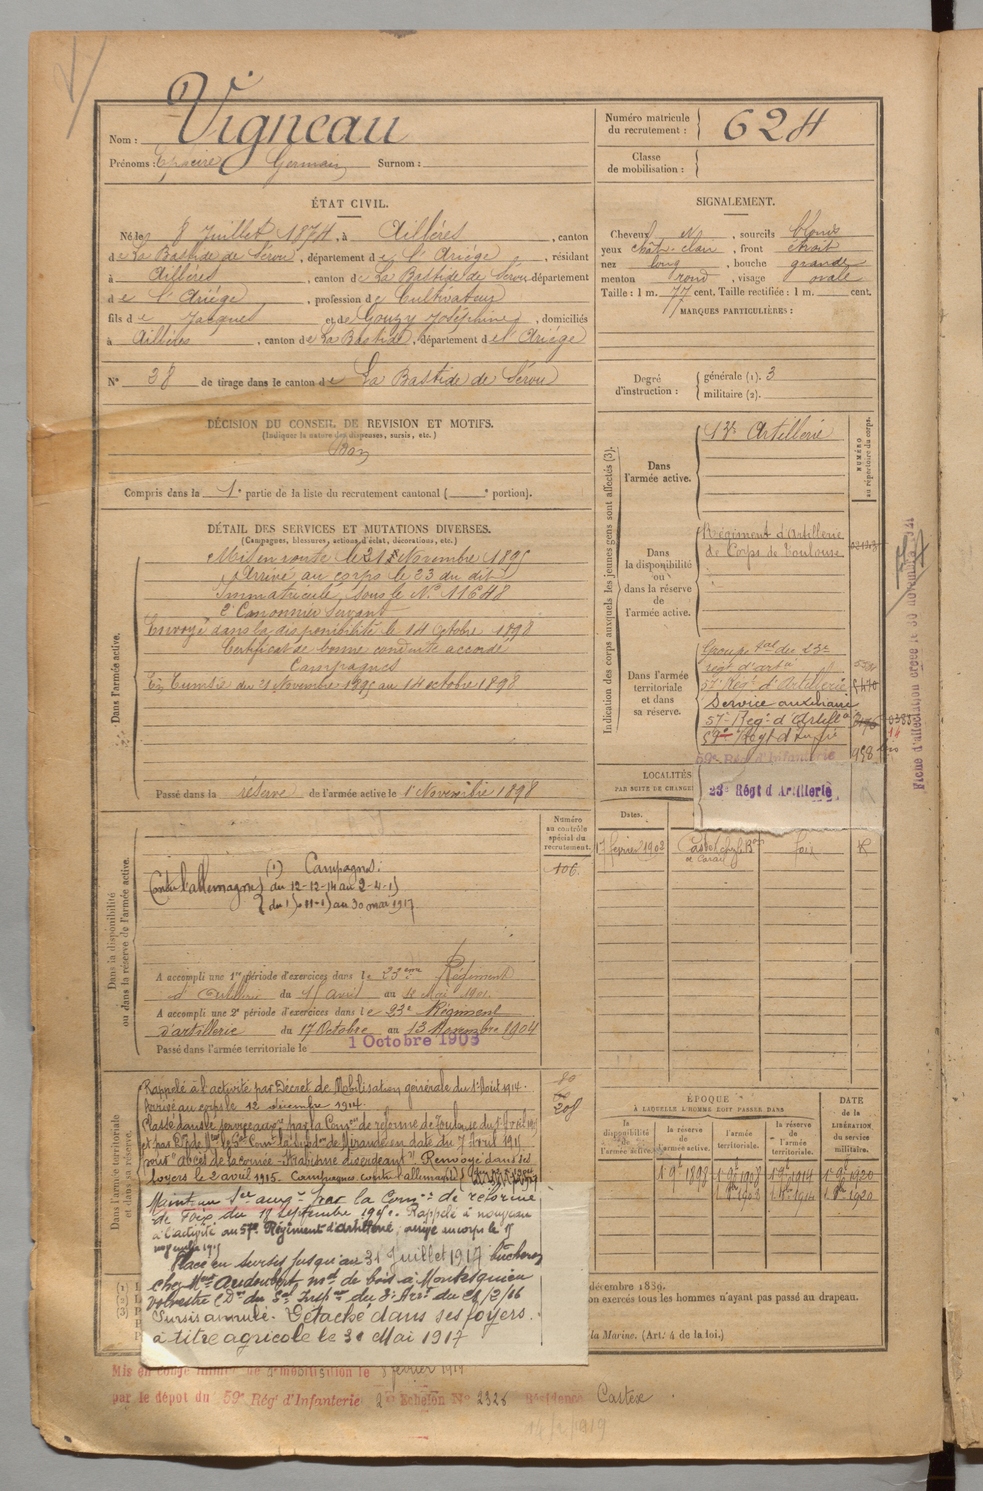 Nom : Vigneau
Prénoms : Germain Surnom :
Numéro matricule du recrutement : 624
Classe de mobilisation :
ÉTAT CIVIL.
Né le 8 Juillet 1874, à Aillères, canton
de La Bastide de Sérou, département de l'Ariège, résidant
à Aillères, canton de La Bastide de Sérou, département
de l'Ariège, profession de Cultivateur
fils de Jacques et de Gouzy Joséphine, domiciliés
à Aillères, canton de La Bastide, département de l'Ariège
N° 38 de tirage dans le canton de La Bastide de Sérou
SIGNALEMENT.
Cheveux, sourcils blonds
yeux chât. clair, front étroit
nez long, bouche grande
menton rond, visage ovale
Taille : 1 m. 77 cent. Taille rectifiée : 1 m. cent.
MARQUES PARTICULIÈRES :
Degré d'instruction : générale (1). 3
militaire (2).
DÉCISION DU CONSEIL DE REVISION ET MOTIFS.
(Indiquer la nature des dispenses, sursis, etc.)
Bon
Compris dans la 1e partie de la liste du recrutement cantonal ( e portion).
DÉTAIL DES SERVICES ET MUTATIONS DIVERSES.
(Campagnes, blessures, actions d'éclat, décorations, etc.)
Dans l'armée active.
Mis en route le 21 Novembre 1895
Arrivé au corps le 23 du dit
Immatriculé sous le N° 11648
2e Canonnier Servant
Envoyé dans la disponibilité le 14 Octobre 1898
Certificat de bonne conduite accordé
Campagnes
En Tunisie du 21 Novembre 1895 au 14 octobre 1898
Passé dans la réserve de l'armée active le 1er Novembre 1898
Indication des corps auxquels les jeunes gens sont affectés (3).
NUMÉRO au répertoire du corps.
Dans l'armée active.
13e Artillerie
Dans la disponibilité ou dans la réserve de l'armée active.
Régiment d'Artillerie
de Corps de Toulouse
Dans l'armée territoriale et dans sa réserve.
Groupe tal du 23e
régt d'artie
57e Régt d'Artillerie
Service auxiliaire
57e Régt d'Artillie
59e Régt d'Infrie
59e Régt d'Infanterie 958
23e Régt d'Artillerie
Fiche d'affectation créée le 30 novembre 1921
LOCALITÉS
PAR SUITE DE CHANGE
Dates.
17 février 1902 Foix R
Dans la disponibilité ou dans la réserve de l'armée active.
Numéro au contrôle spécial du recrutement.
106
(1) Campagnes :
Contre l'allemagne du 12-12-14 au 2-4-15
du 15-11-15 au 30 mai 1917
A accompli une 1re période d'exercices dans le 23ème Régiment
d'artillerie du 15 avril au 12 Mai 1901
A accompli une 2e période d'exercices dans le 23e Régiment
d'artillerie du 17 Octobre au 13 Novembre 1904
Passé dans l'armée territoriale le 1 Octobre 1908
Dans l'armée territoriale et dans sa réserve.
80
208
Rappelé à l'activité par Décret de Mobilisation générale du 1er Août 1914.
Arrivé au corps le 12 décembre 1914.
Classé dans le service auxre par la Comon de réforme de Toulouse du 1er Avril 1915
en date du 7 Avril 1915
Renvoyé dans ses
foyers le 2 avril 1915. Campagne contre l'allemagne
Maint. au Sce auxre par la Comon de réforme
de Foix du 18 septembre 1915. Rappelé à nouveau
à l'activité au 57e Régiment d'Artillerie, arrivé au corps le 15
novembre 1915
Placé en sursis jusqu'au 31 Juillet 1917 bûcheron
chez Mr Audoubert md de bois à Montesquieu
Volvestre
Sursis annulé. Détaché dans ses foyers
à titre agricole le 31 Mai 1917
ÉPOQUE
À LAQUELLE L'HOMME DOIT PASSER DANS
la disponibilité de l'armée active.
la réserve de l'armée active.
l'armée territoriale.
la réserve de l'armée territoriale.
DATE de la LIBÉRATION du service militaire.
1er 9bre 1898 1er 9bre 1908 1er 9bre 1914 1er 9bre 1920
1er 8bre 1908 1er 8bre 1914 1er 8bre 1920
décembre 1889.
on exercés tous les hommes n'ayant pas passé au drapeau.
la Marine. (Art. 4 de la loi.)
Mis en congé illimité de démobilisation le février 1919
par le dépôt du 59e Régt d'Infanterie 2e Echelon N° 2328 Résidence Castex
14/2/1919